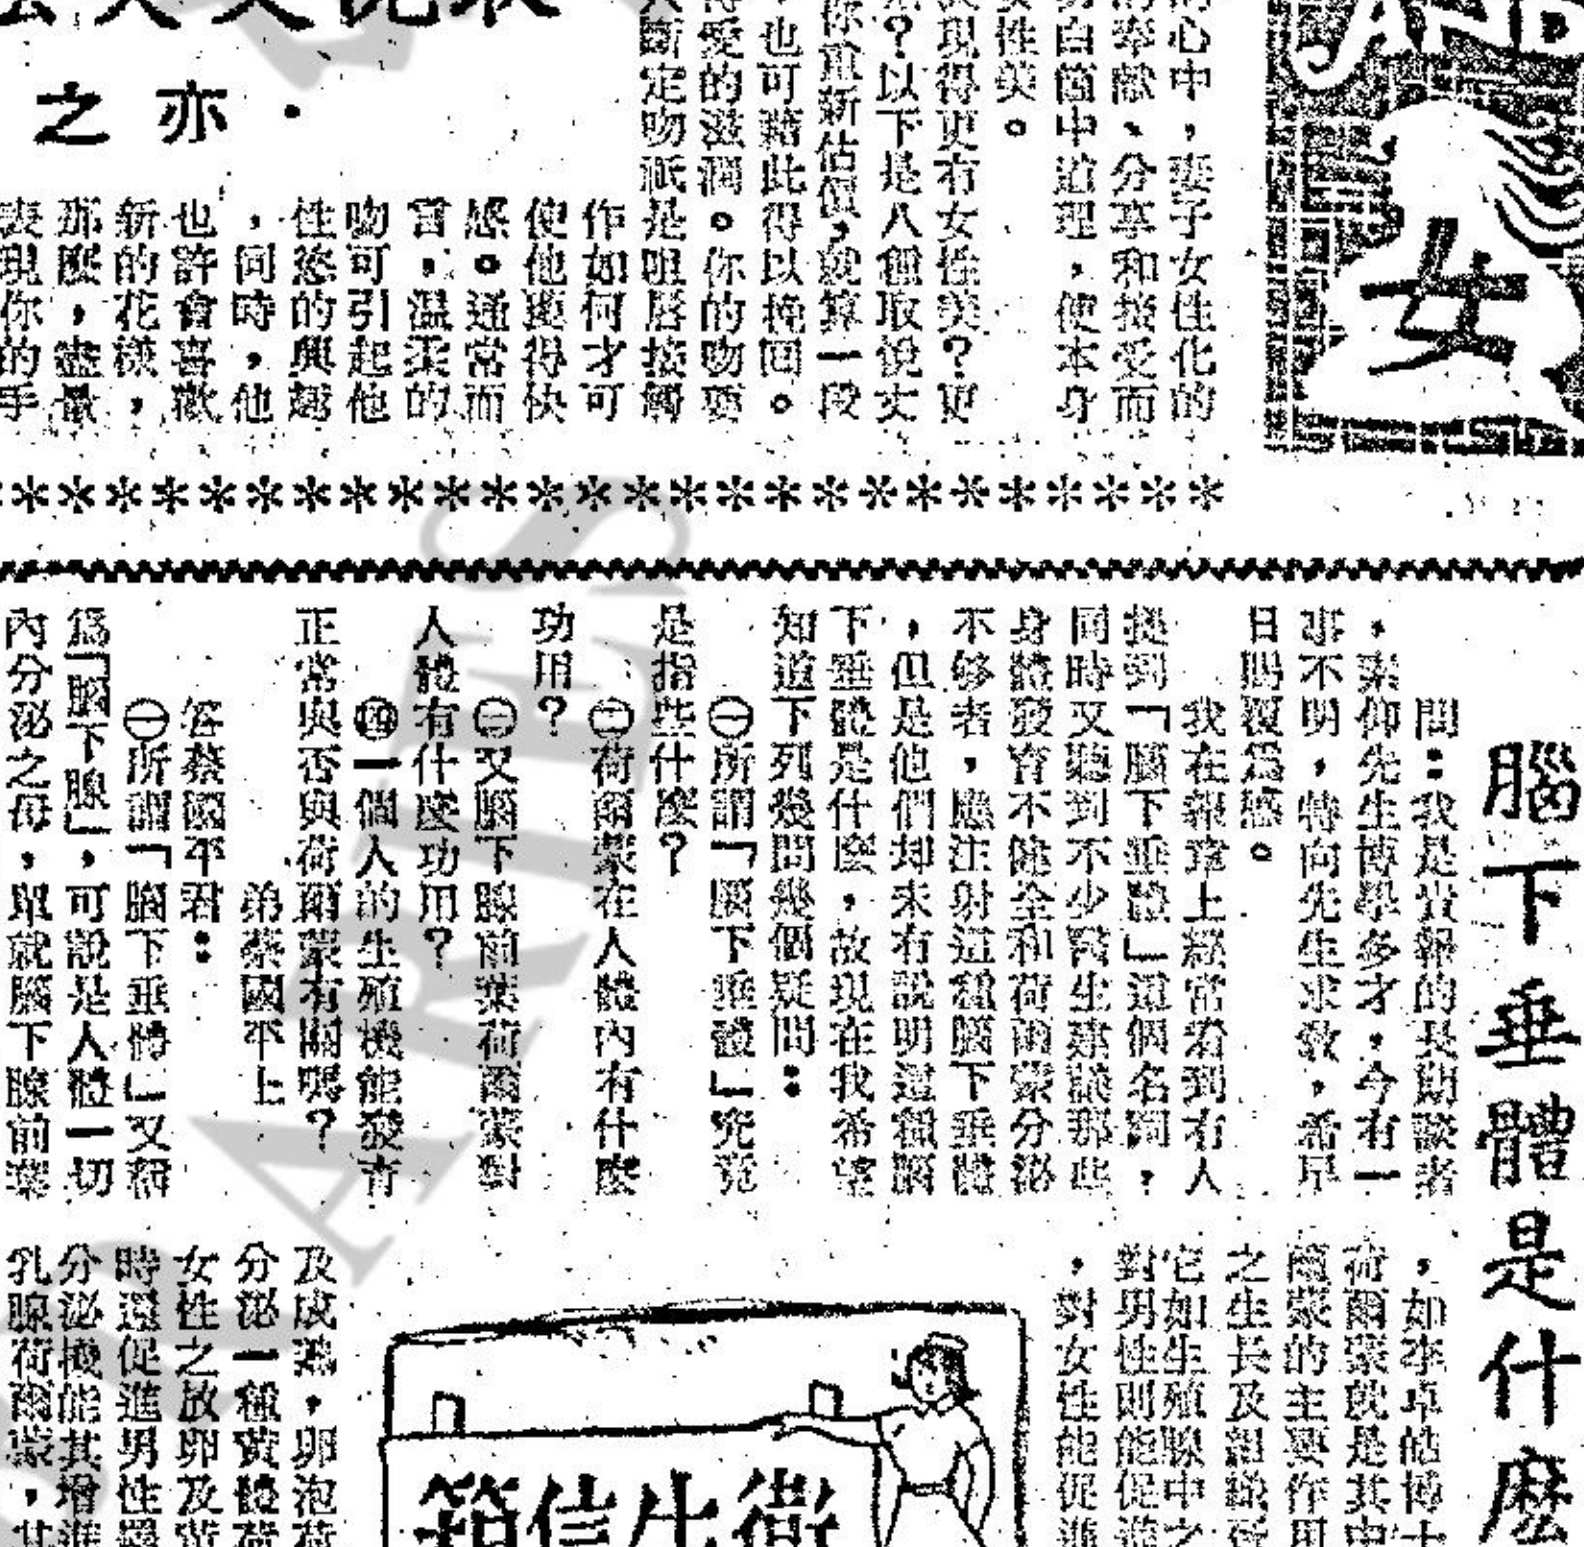 AND
女
心中,妻子女性化的
奉献、分享和接受而
明白箇中道理,使本身
女性美。
表現得更有女性美?更
?以下是八種取悅丈
你重新估價,就算一段
也可藉此得以挽回。
愛的滋潤。你的吻要
人斷定吻祇是咀唇接觸
作如何才可
使他覺得快
感。通常而
言,温柔的
吻可引起他
性慾的興趣
,同時,他
也許會喜歡
新的花樣,
那麼,盡量
表現你的手
亦之
腦下垂體是什麽
問:我是貴報的長期讀者
,素仰先生博學多才,今有一
事不明,特向先生求教,希早
日賜覆爲感。
我在報章上經常看到有人
提到「腦下垂體」這個名詞,
同時又聽到不少醫生建議那些
身體發育不健全和荷爾蒙分泌
不够者,應注射這種腦下垂體
,但是他們却未有說明這種腦
下垂體是什麽,故現在我希望
知道下列幾問幾個疑問:
㊀所謂「腦下垂體」究竟
是指些什麽?
㊁荷爾蒙在人體內有什麽
功用?
㊂又腦下腺前葉荷爾蒙對
人體有什麽功用?
㊃一個人的生殖機能發育
正常與否與荷爾蒙有關嗎?
弟蔡國平上
答蔡國平君:
㊀所謂「腦下垂體」又稱
爲「腦下腺」,可說是人體一切
內分泌之母,單就腦下腺前葉
,如李卓皓博士
荷爾蒙就是其中
爾蒙的主要作用
之生長及組織
它如生殖腺中之
對男性則能促進
,對女性能促進
衛生信箱
及成熟,卵泡荷
分泌一種黃體荷
女性之放卵及黃
時還促進男性
分泌機能其增進
乳腺荷爾蒙,其